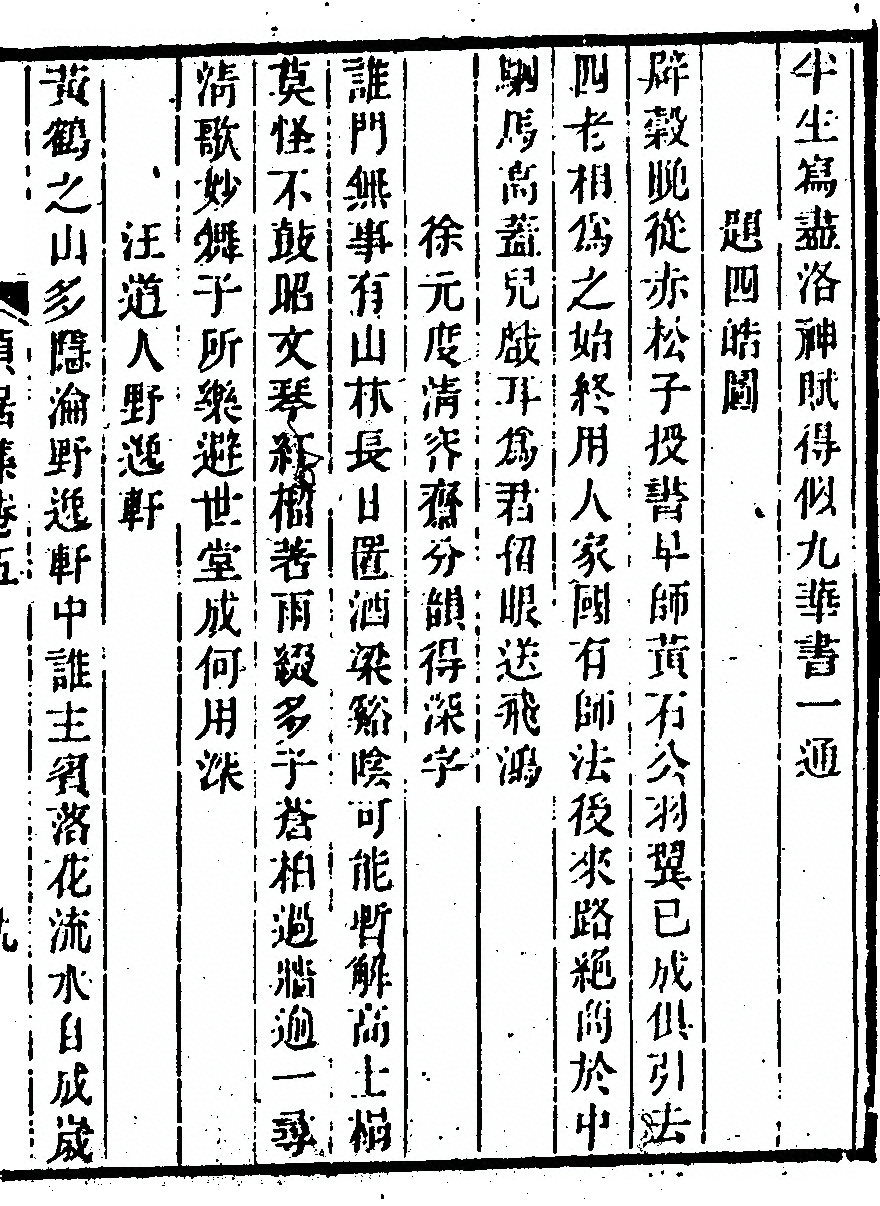 半生寫盡洛神賦得似九華書一通
題四皓圖
辟穀晚從赤松子授書早師黃石公羽翼已成俱引去
四老相爲之始終用人家國有師法後來路絕商於中
駟馬高蓋兒戲耳爲君留眼送飛鴻
徐元度淸容齋分韻得深字
誰門無事有山林長日置酒梁谿陰可能暫解高士榻
莫怪不鼓昭文琴紅榴著雨綴多子蒼柏過牆逈一尋
淸歌妙舞子所樂避世堂成何用深
汪道人野逸軒
黃鶴之山多隱淪野逸軒中誰主賓落花流水自成歲
居集卷五
九